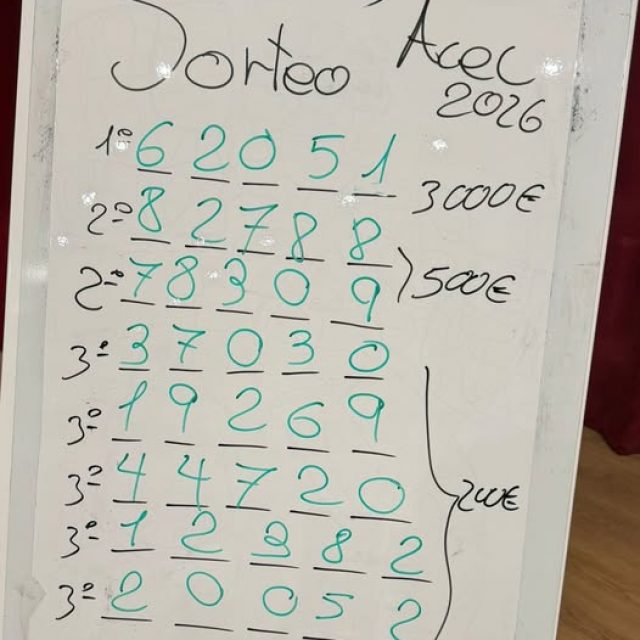 Sorteo Acec
2026
1º 6 2 0 5 1 3000€
2º 8 2 7 8 8
2º 7 8 3 0 9 500€
3º 3 7 0 3 0
3º 1 9 2 6 9
3º 4 4 7 2 0 200€
3º 1 2 3 8 2
3º 2 0 0 5 2